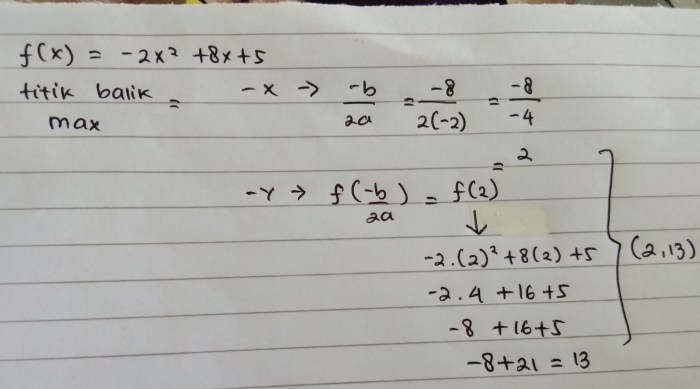 f(x) = -2x² +8x+5
titik balik max = -x → -b/2a = -8/2(-2) = -8/-4
= 2
-Y → f(-b/2a) = f(2)
↓
-2.(2)² +8(2) +5
-2.4 +16 +5
-8 +16+5
-8+21 = 13
} (2,13)